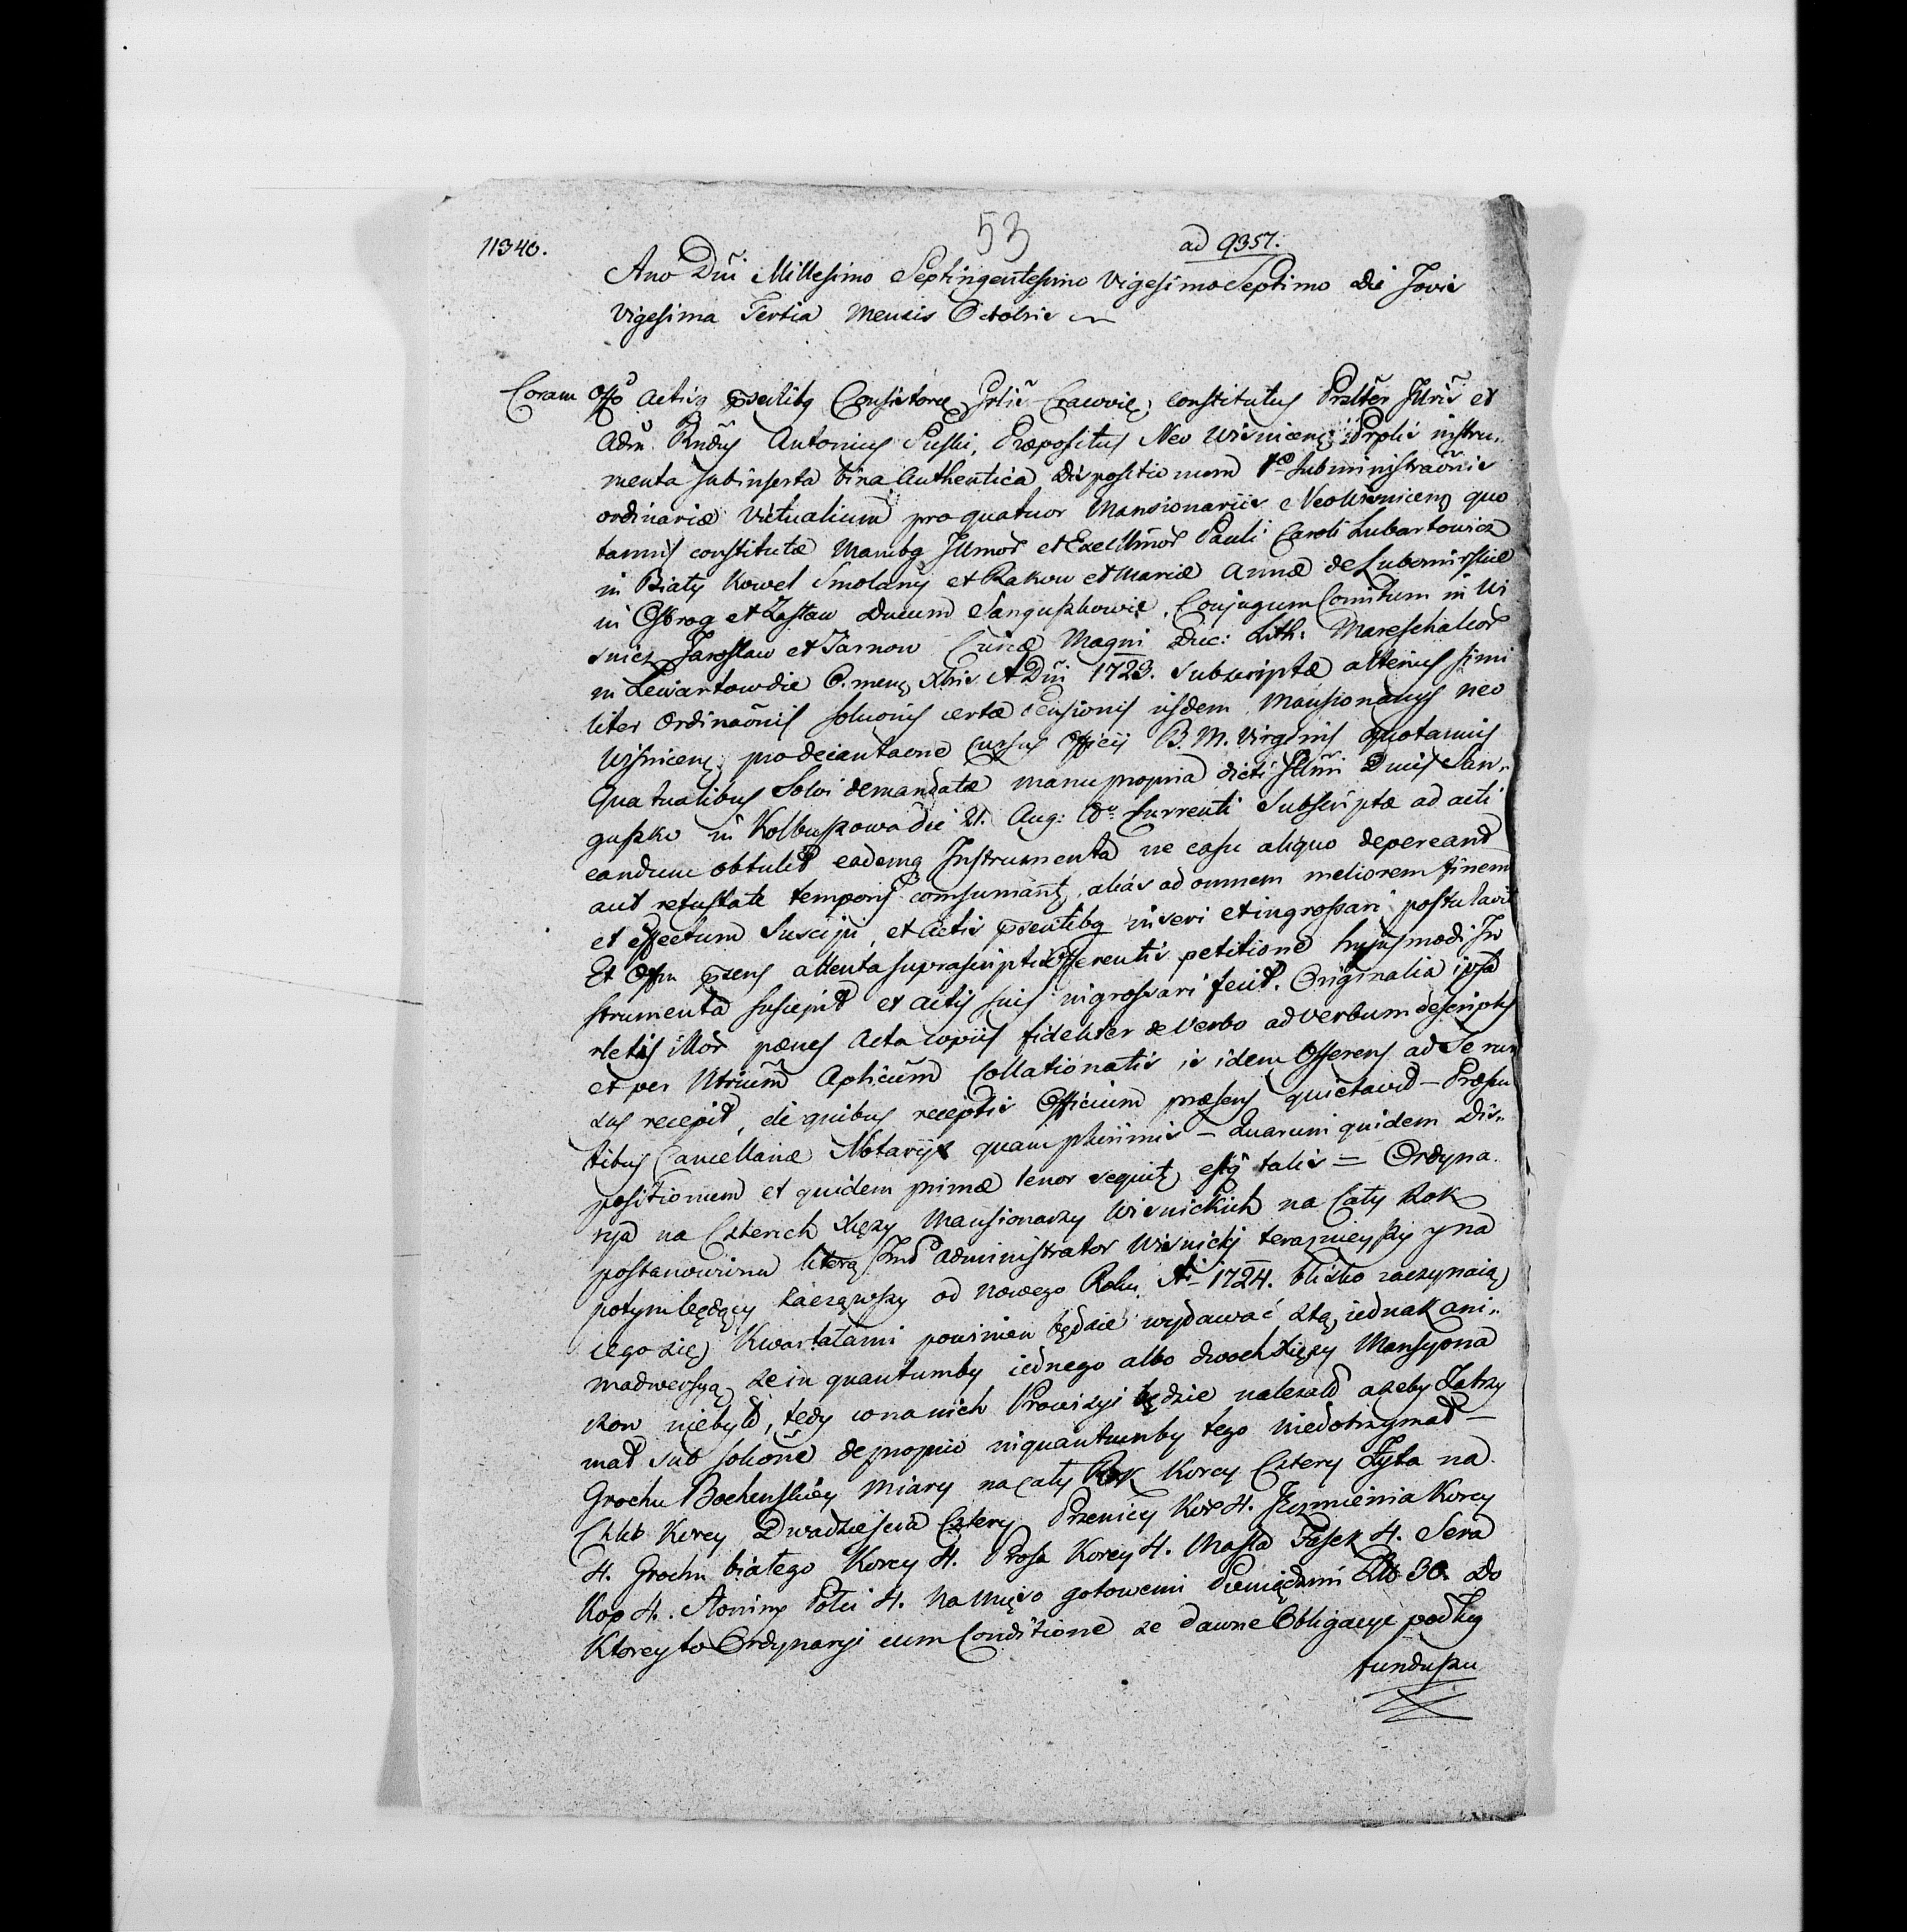 53
11340. ad 9357.
Ano Dni Millesimo Septingentesimo Vigesimo Septimo die Jovis
Vigesima Tertia Mensis Octobris
Coram Offo Actisq pntibq Consistorii Gnlis Cracovie constitutus Prlter Illris et
Adm Rndus Antonius Suski, Præpositus Neo Wisnicens instru„
menta subinserta bina Authentica dispositionum 1º Subministraonis
ordinariæ Victualium pro quatuor Mansionariis NeoWisnicens quo
tannis constitutæ Manibq Illmor et Excellmor Pauli Caroli Lubartowicz
in Biały Kowel Smolany et Rakow et Mariæ Annæ de Lubomirskie
in Ostrog et Zasław Ducum Sanguszkowie, Conjugum Comitum in Wi
snicz Jarosław et Tarnow Curiæ Magni Duc: Lith: Mareschalcor
in Lewartow die 6. mens Xbris A Dni 1723. Subscriptæ alterius simi
liter Ordinaonis soluonis certæ Pensionis iisdem Mansionariis neo
Wisnicens pro decantaone Cursus Officii B. M. Virginis quotannis
Quatualibus Solvi demandatæ manu propria dicti Illmi Ducis San„
guszko in Kolbuszowa die 21. Aug: Ao currenti Subscriptæ ad acti
candum obtulit eademq Instrumenta ne casu aliquo depereant
aut vetustate temporis consumant, alias ad omnem meliorem finem
et effectum Suscipi, et Actis pntibq inseri et ingrossari postulavit
Et Offm pns attenta suprascripti Offerentis petitione hujusmodi In
strumenta suscepit et actis suis ingrossari fecit. Originalia ipsa
rletis illor pænes Acta copiis fideliter de Verbo ad verbum descriptis
et per Ntrium Aplicum Collationatis is idem Offerens ad Se rur
sus recepit, de quibus receptis Officium præsens quietavit – Præsen
tibus Cancellariæ Notariis quam plurimis – Quarum quidem Dis„
positionum et quidem primæ tenor sequit, estq talis = Ordyna
rya na Czterech Xięzy Mansionarzy Wisnickich na Cały Rok
postanowiona którą Jmć Administrator Wisnicki teraznieyszy y na
potym będący zacząwszy od nowego Roku Ai 1724. blisko zaczynaią
cego się Kwartałami powinien będzie wydawać ztą iednak ani„
madwersyą, ze in quantumby iednego albo dwoch Xięzy Mansyona
rzow niebyło, tedy co na nich Prowizyi będzie należało azeby zatrzy
mał sub soluone de proprio inquantumby tego niedotrzymał –
Grochu Bochenskiey miary na cały Rok Korcy Cztery Żyta na
Chleb Korcy Dwadziescia Cztery Przenicy Kor 4. Jęczmienia Korcy
4. Grochu białego Korcy 4. Prosa Korcy 4. Masła Fasek 4. Sera
Kop 4. Słoniny Połci 4. Na mięso gotowemi Pieniędzmi Zło 30. do
Ktorey to Ordynaryi cum Conditione ze dawne Obligacye podług
funduszu